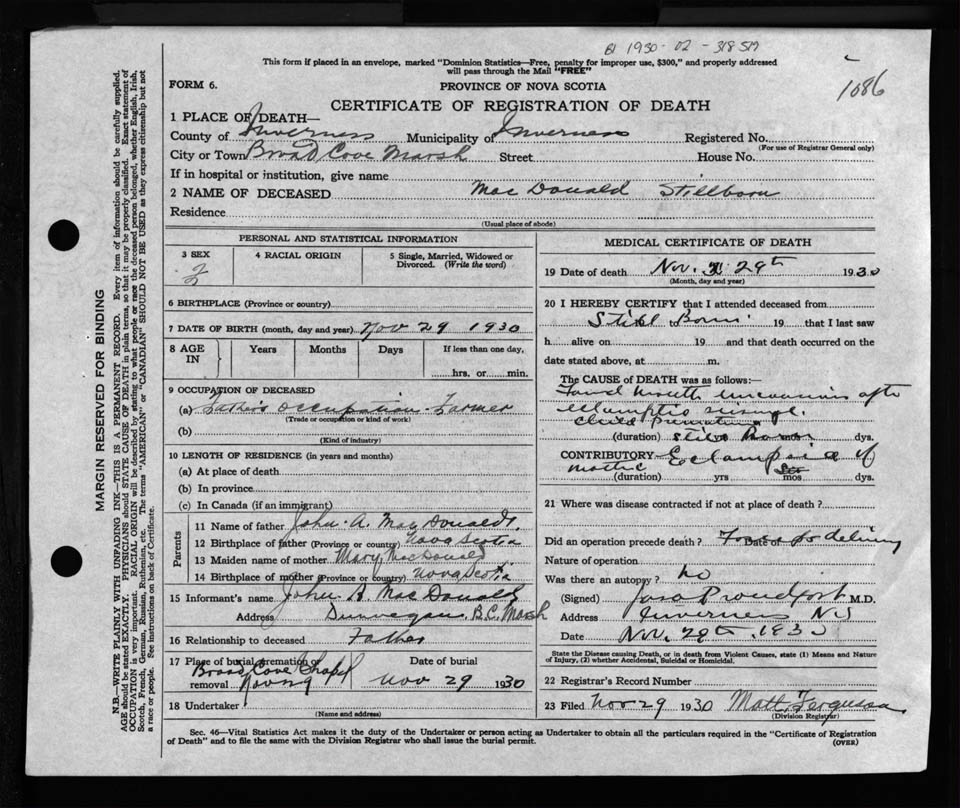 B1 1930-02-318517
1086
This form if placed in an envelope, marked "Dominion Statistics—Free, penalty for improper use, $300," and properly addressed
will pass through the Mail "FREE"
FORM 6.
PROVINCE OF NOVA SCOTIA
CERTIFICATE OF REGISTRATION OF DEATH
1 PLACE OF DEATH—
County of Inverness Municipality of Inverness Registered No.
(For use of Registrar General only)
City or Town Broad Cove Marsh Street House No.
If in hospital or institution, give name
2 NAME OF DECEASED MacDonald Stillborn
Residence
(Usual place of abode)
PERSONAL AND STATISTICAL INFORMATION
3 SEX 4 RACIAL ORIGIN 5 Single, Married, Widowed or
Divorced. (Write the word)
6 BIRTHPLACE (Province or country)
7 DATE OF BIRTH (month, day and year) Nov 29 1930
8 AGE IN Years Months Days If less than one day,
hrs. or min.
9 OCCUPATION OF DECEASED
(a) Father's Occupation - Farmer
(Trade or occupation or kind of work)
(b)
(Kind of industry)
10 LENGTH OF RESIDENCE (in years and months)
(a) At place of death
(b) In province
(c) In Canada (if an immigrant)
Parents
11 Name of father John A. MacDonald
12 Birthplace of father (Province or country) Nova Scotia
13 Maiden name of mother Mary MacDonald
14 Birthplace of mother (Province or country) Nova Scotia
15 Informant's name John A MacDonald
Address Dunvegan. B.C. Marsh
16 Relationship to deceased Father
17 Place of burial, cremation or Broad Cove Chapel Date of burial
removal Nov 29 1930
18 Undertaker
(Name and address)
MEDICAL CERTIFICATE OF DEATH
19 Date of death Nov. 29th 1930
(Month, day and year)
20 I HEREBY CERTIFY that I attended deceased from
Still to Born 19 that I last saw
h alive on 19 and that death occurred on the
date stated above, at m.
The CAUSE OF DEATH was as follows:—
Found after
child
(duration) still born dys.
CONTRIBUTORY Eclampsia of
(duration) yrs mos dys.
21 Where was disease contracted if not at place of death?
Did an operation precede death? Date of delivery
Nature of operation
Was there an autopsy? no
(Signed) Proudfoot M.D.
Address Inverness NS
Date Nov. 29th 1930
State the Disease causing Death, or in death from Violent Causes, state (1) Means and
Nature of Injury, (2) whether Accidental, Suicidal or Homicidal.
22 Registrar's Record Number
23 Filed Nov 29 1930 Matt. Ferguson
(Division Registrar)
Sec. 46—Vital Statistics Act makes it the duty of the Undertaker or person acting as Undertaker to obtain all the particulars required in the "Certificate of Registration
of Death" and to file the same with the Division Registrar who shall issue the burial permit.
(OVER)
MARGIN RESERVED FOR BINDING
N.B.—WRITE PLAINLY WITH UNFADING INK—THIS IS A PERMANENT RECORD. Every item of information should be carefully supplied.
AGE should be stated EXACTLY. PHYSICIANS should STATE CAUSE OF DEATH in plain terms, so that it may be properly classified. Exact statement of
OCCUPATION is very important. RACIAL ORIGIN will be described by stating to what people or race the deceased person belonged, whether English, Irish,
Scotch, French, German, Russian, Ruthenian, etc. The terms "AMERICAN" or "CANADIAN" SHOULD NOT BE USED as they express citizenship but not
a race or people. See instructions on back of Certificate.